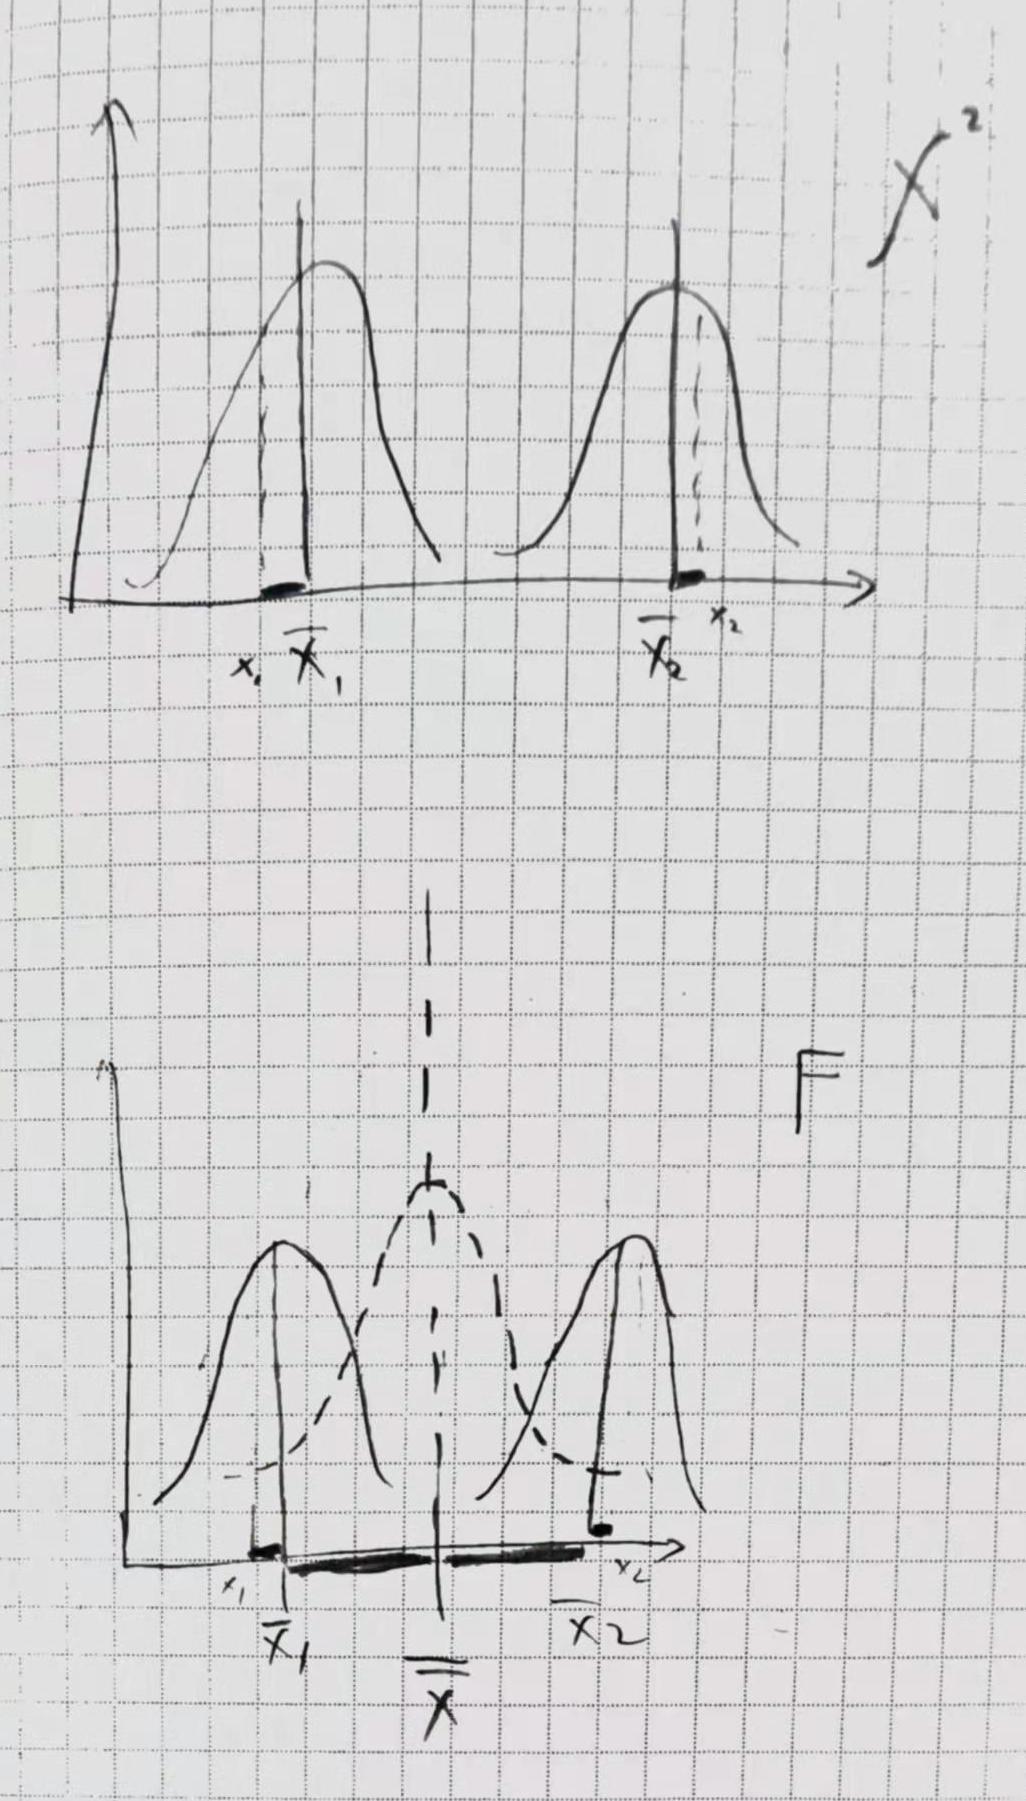 X²
x₁ X̅₁ X̅₂ x₂
F
x₁ x₂
x̅₁ x̅2
X̿